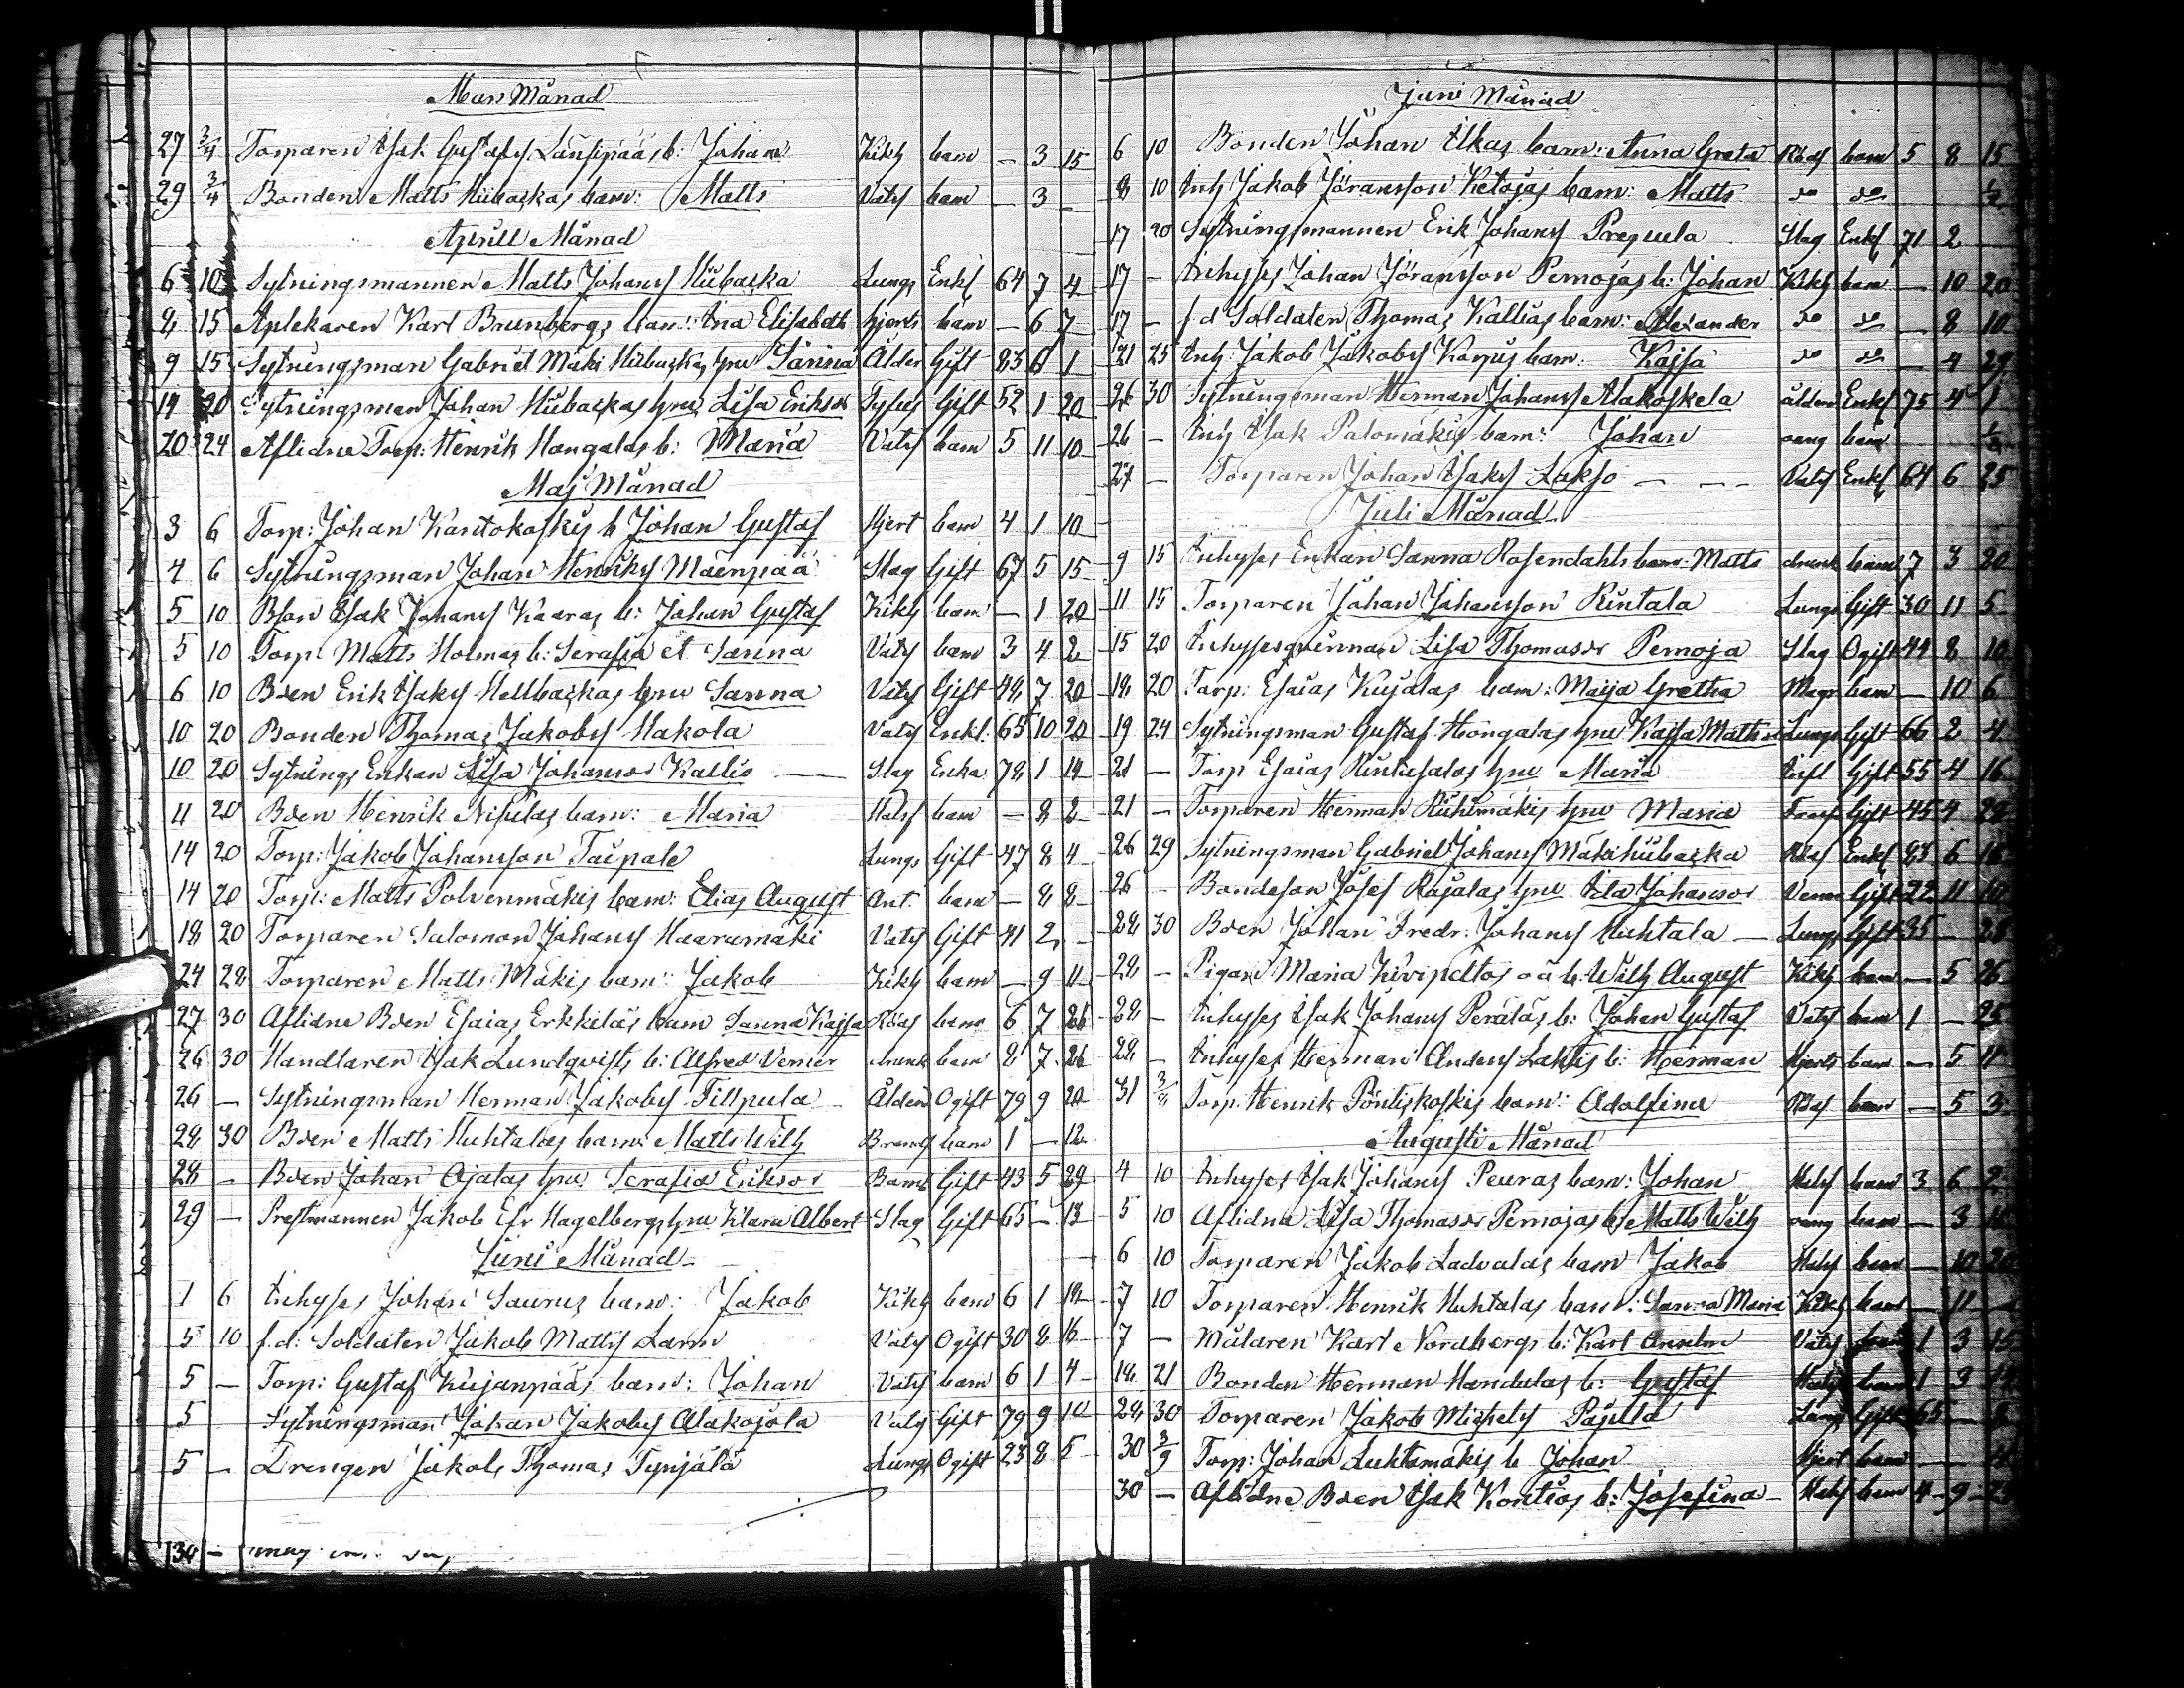 Mars Månad
27 3/4 Torparen Isak Gustafs Länsipääs b: Johan Kikh barn — 3 15
29 3/4 Bonden Matts Hübackas barn: Matts Vats barn — 3 —
Aprill Månad
6 10 Sytningsmannen Matts Johans Hübacka Lungs Enkl 64 7 4
8 15 Aptekaren Karl Brunbergs barn: Ina Elisabeth hjerts barn — 6 7
9 15 Sytningsman Gabriel Mäki Hübackas hru Sanna Ålder Gift 83 6 1
14 20 Sytningsman Johan Hübackas hru Lisa Eriksdr Tyfus Gift 52 1 20
20 24 Aflidne Torp: Henrik Hangalas b: Maria Vats barn 5 11 10
Maj Månad
3 6 Torp: Johan Kantokoskis b Johan Gustaf Hjert barn 4 1 10
4 6 Sytningsman Johan Henriks Mäenpää Slag Gift 67 5 15
5 10 Bson Isak Johans Kaaras b: Johan Gustaf Kikh barn — 1 20
5 10 Torp: Matts Holmas b: Serafia et Sanna Vats barn 3 4 2
6 10 Bden Erik Isaks Hellbackas hru Sanna Vats Gift 48 7 20
10 20 Bonden Thomas Jakobs Hakola Vats Enkl. 65 10 20
10 20 Sytnings Enkan Lisa Johansdr Kallio — Slag Enka 78 1 14
11 20 Bden Henrik Nisulas barn: Maria Hals barn — 8 2
14 20 Torp: Jakob Johansson Taipale Lungs Gift 47 8 4
14 20 Torp: Matts Polvenmäkis barn: Elias August Ant. barn — 8 8
18 20 Torparen Salomon Johans Haarumäki Vats Gift 41 2 —
24 28 Torparen Matts Mäkis barn: Jakob Kikh barn — 9 11
27 30 Aflidne Bden Esaias Erkkiläs barn Sanna Kajsa Röds barn 6 7 26
26 30 Handlaren Isak Lundqvists b: Alfred Verner barn 8 7 26
26 — Sytningsman Herman Jakobs Tillpula Ålderd Ogift 79 9 20
28 30 Bden Matts Huhtalas barn: Matts Wilh barn 1 — 12
28 — Bden Johan Ojalas hru Serafia Eriksdr Barns Gift 43 5 29
29 — Prestmannen Jakob Efr Hagelbergs hru Klara Albert Slag Gift 65 — 13
Juni Månad
1 6 Inhyses Johan Saurus barn: Jakob Kikh barn 6 1 18
5 10 f.d: Soldaten Jakob Matts Lann Vats Ogift 30 8 16
5 — Torp: Gustaf Kujanpääs barn: Johan Vats barn 6 1 4
5 Sytningsman Johan Jakobs Alakojola Vats Gift 79 9 10
5 — Drengen Jakob Thomas Tynjälä Lungs Ogift 23 8 5
30 —
Juni Månad
6 10 Bonden Johan Ilkas barn: Anna Greta Röds barn 5 8 15
8 10 Inh Jakob Jöransson Ketojas barn: Matts do do ½
17 20 Sytningsmannen Erik Johans Prepula Slag Enkl 71 2 —
17 — Inhyses Johan Jöransson Pernojas b: Johan Kikh barn — 10 20
17 — f d Soldaten Thomas Kallias barn: Alexander do do — 8 10
21 25 Inh: Jakob Jakobs Karpus barn: Kajsa do do — 4 29
26 30 Sytningsman Herman Johans Alakoskela ålderd Enkl 75 4 1
26 — Inh Isak Palomäkis barn: Johan barn ½
27 — Torparen Johan Isaks Lakso — — — Vats Enkl 61 6 25
Juli Månad
9 15 Inhyses Enkan Sanna Rosendahls barn: Matts drunk barn 7 3 20
11 15 Torparen Johan Johansson Rintala Lungs Gift 30 11 5
15 20 Inhysesqvinnan Lisa Thomasdr Pernoja Slag Ogift 44 8 10
18 20 Torp: Esaias Kujalas barn: Maija Gretha Mags barn — 10 6
19 24 Sytningsman Gustaf Hongalas hru Kajsa Mattsdr Lungs Gift 66 2 4
21 — Torp Esaias Rintusalas hru Maria Infl Gift 55 4 16
21 — Torparen Herman Ruhimäkis hru Maria Gift 45 4 29
26 29 Sytningsman Gabriel Johans Mäkihübacka Enkl 83 6 16
26 — Bondeson Josef Rajalas hru Ida Johansdr Gift 22 11
28 30 Bden Johan Fredr: Johans Huhtala — Lungs Gift 35 — 28
28 — Pigan Maria Kivipeltos oä b: Wilh August Kikh barn — 5 26
28 — Inhyses Isak Johans Peräläs b: Johan Gustaf Vats barn 1 — 25
28 — Inhyses Herman Anders Lahtis b: Herman Hjerts barn — 5 11
31 3/8 Torp. Henrik Pöntiskoskis barn: Adolfina Röds barn — 5 3
Augusti Månad
4 10 Inhyses Isak Johans Peuras barn: Johan Hals barn 3 6 2
5 10 Aflidna Lisa Thomasdr Pernojas b: Matts Wilh barn — 3
6 10 Torparen Jakob Ladvalas barn Jakob Hals barn — 10 20
7 10 Torparen Henrik Huhtalas barn: Sanna Maria Kikh barn — 11 —
7 — Målaren Karl Nordbergs b: Karl Anselm Vats barn 1 3 15
18 21 Bonden Herman Handulas b: Gustaf Hals barn 1 3
28 30 Torparen Jakob Michels Pajula Lungs Gift 65 —
30 3/9 Torp: Johan Luhtamäkis b Johan Hjert barn —
30 — Aflidne Bden Isak Kontios b: Josefina — Hals barn 4 9